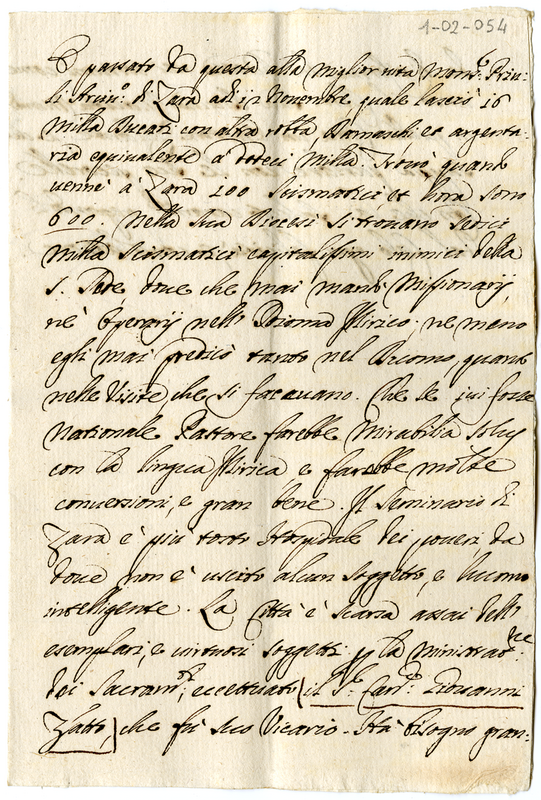 1-02-054
È passato da questa alla miglior vita Mons.r Priu-
li Arciv.o di Zara adi 12 Novembre, quale lasciò 16
milla Ducati con altra robba, Damaschi et argenta-
ria equivalente a' dodeci milla. Trovò quando
venne à Zara 200 Scismatici et hora sono
600. Nella sua Diocesi si trovano sedici
milla scismatici capitalissimi inimici della
S. Sede, dove che mai mandò Missionarij,
nè Operarij nell' Idioma Illirico; ne meno
egli mai predicò tanto nel Domo, quando
nelle Visite che si facevano. Che se ivi fosse
Nationale Pastore farebbe Mirabilia solus
con la lingua Illirica e farebbe molte
conversioni, e gran bene. Il Seminario di
Zara è più tosto Hospidale dei poveri da
dove non è uscito alcun soggetto, e huomo
intelligente. La Città è scarsa assai dell'
esemplari, e virtuosi soggetti p la ministrat.ne
dei Sacram.ti, eccettuato il S.r Can.co Giovanni
Zatto, che fù suo Vicario. Hà bisogno gran-